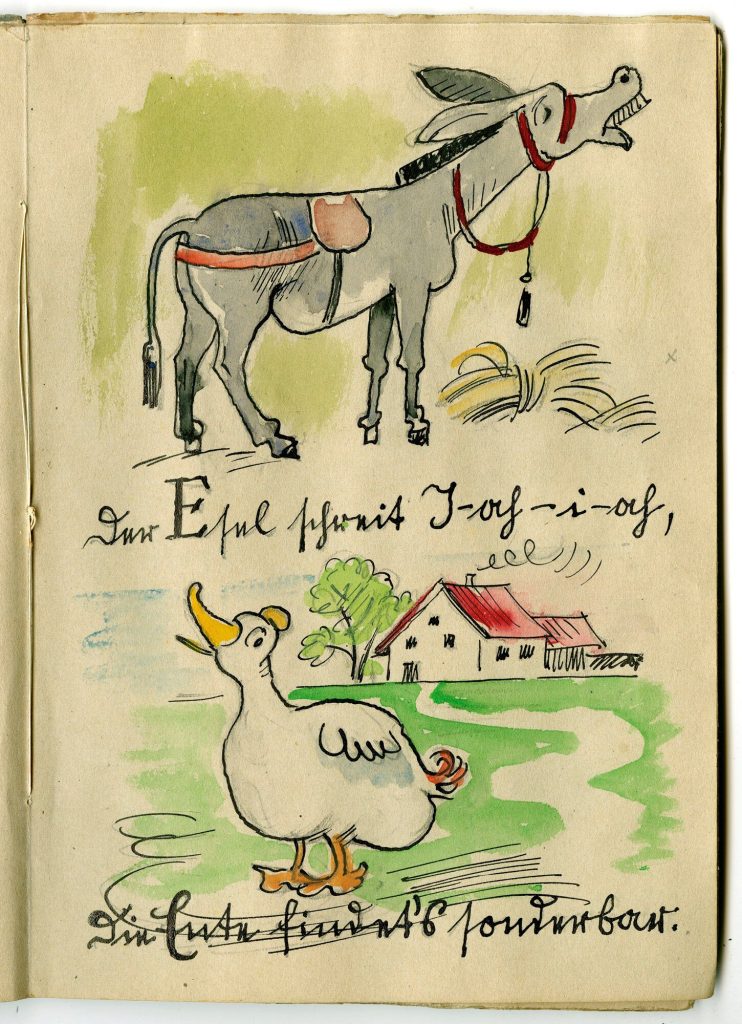 Der Esel schreit I-ah-i-ah,
Die Ente findet's sonderbar.